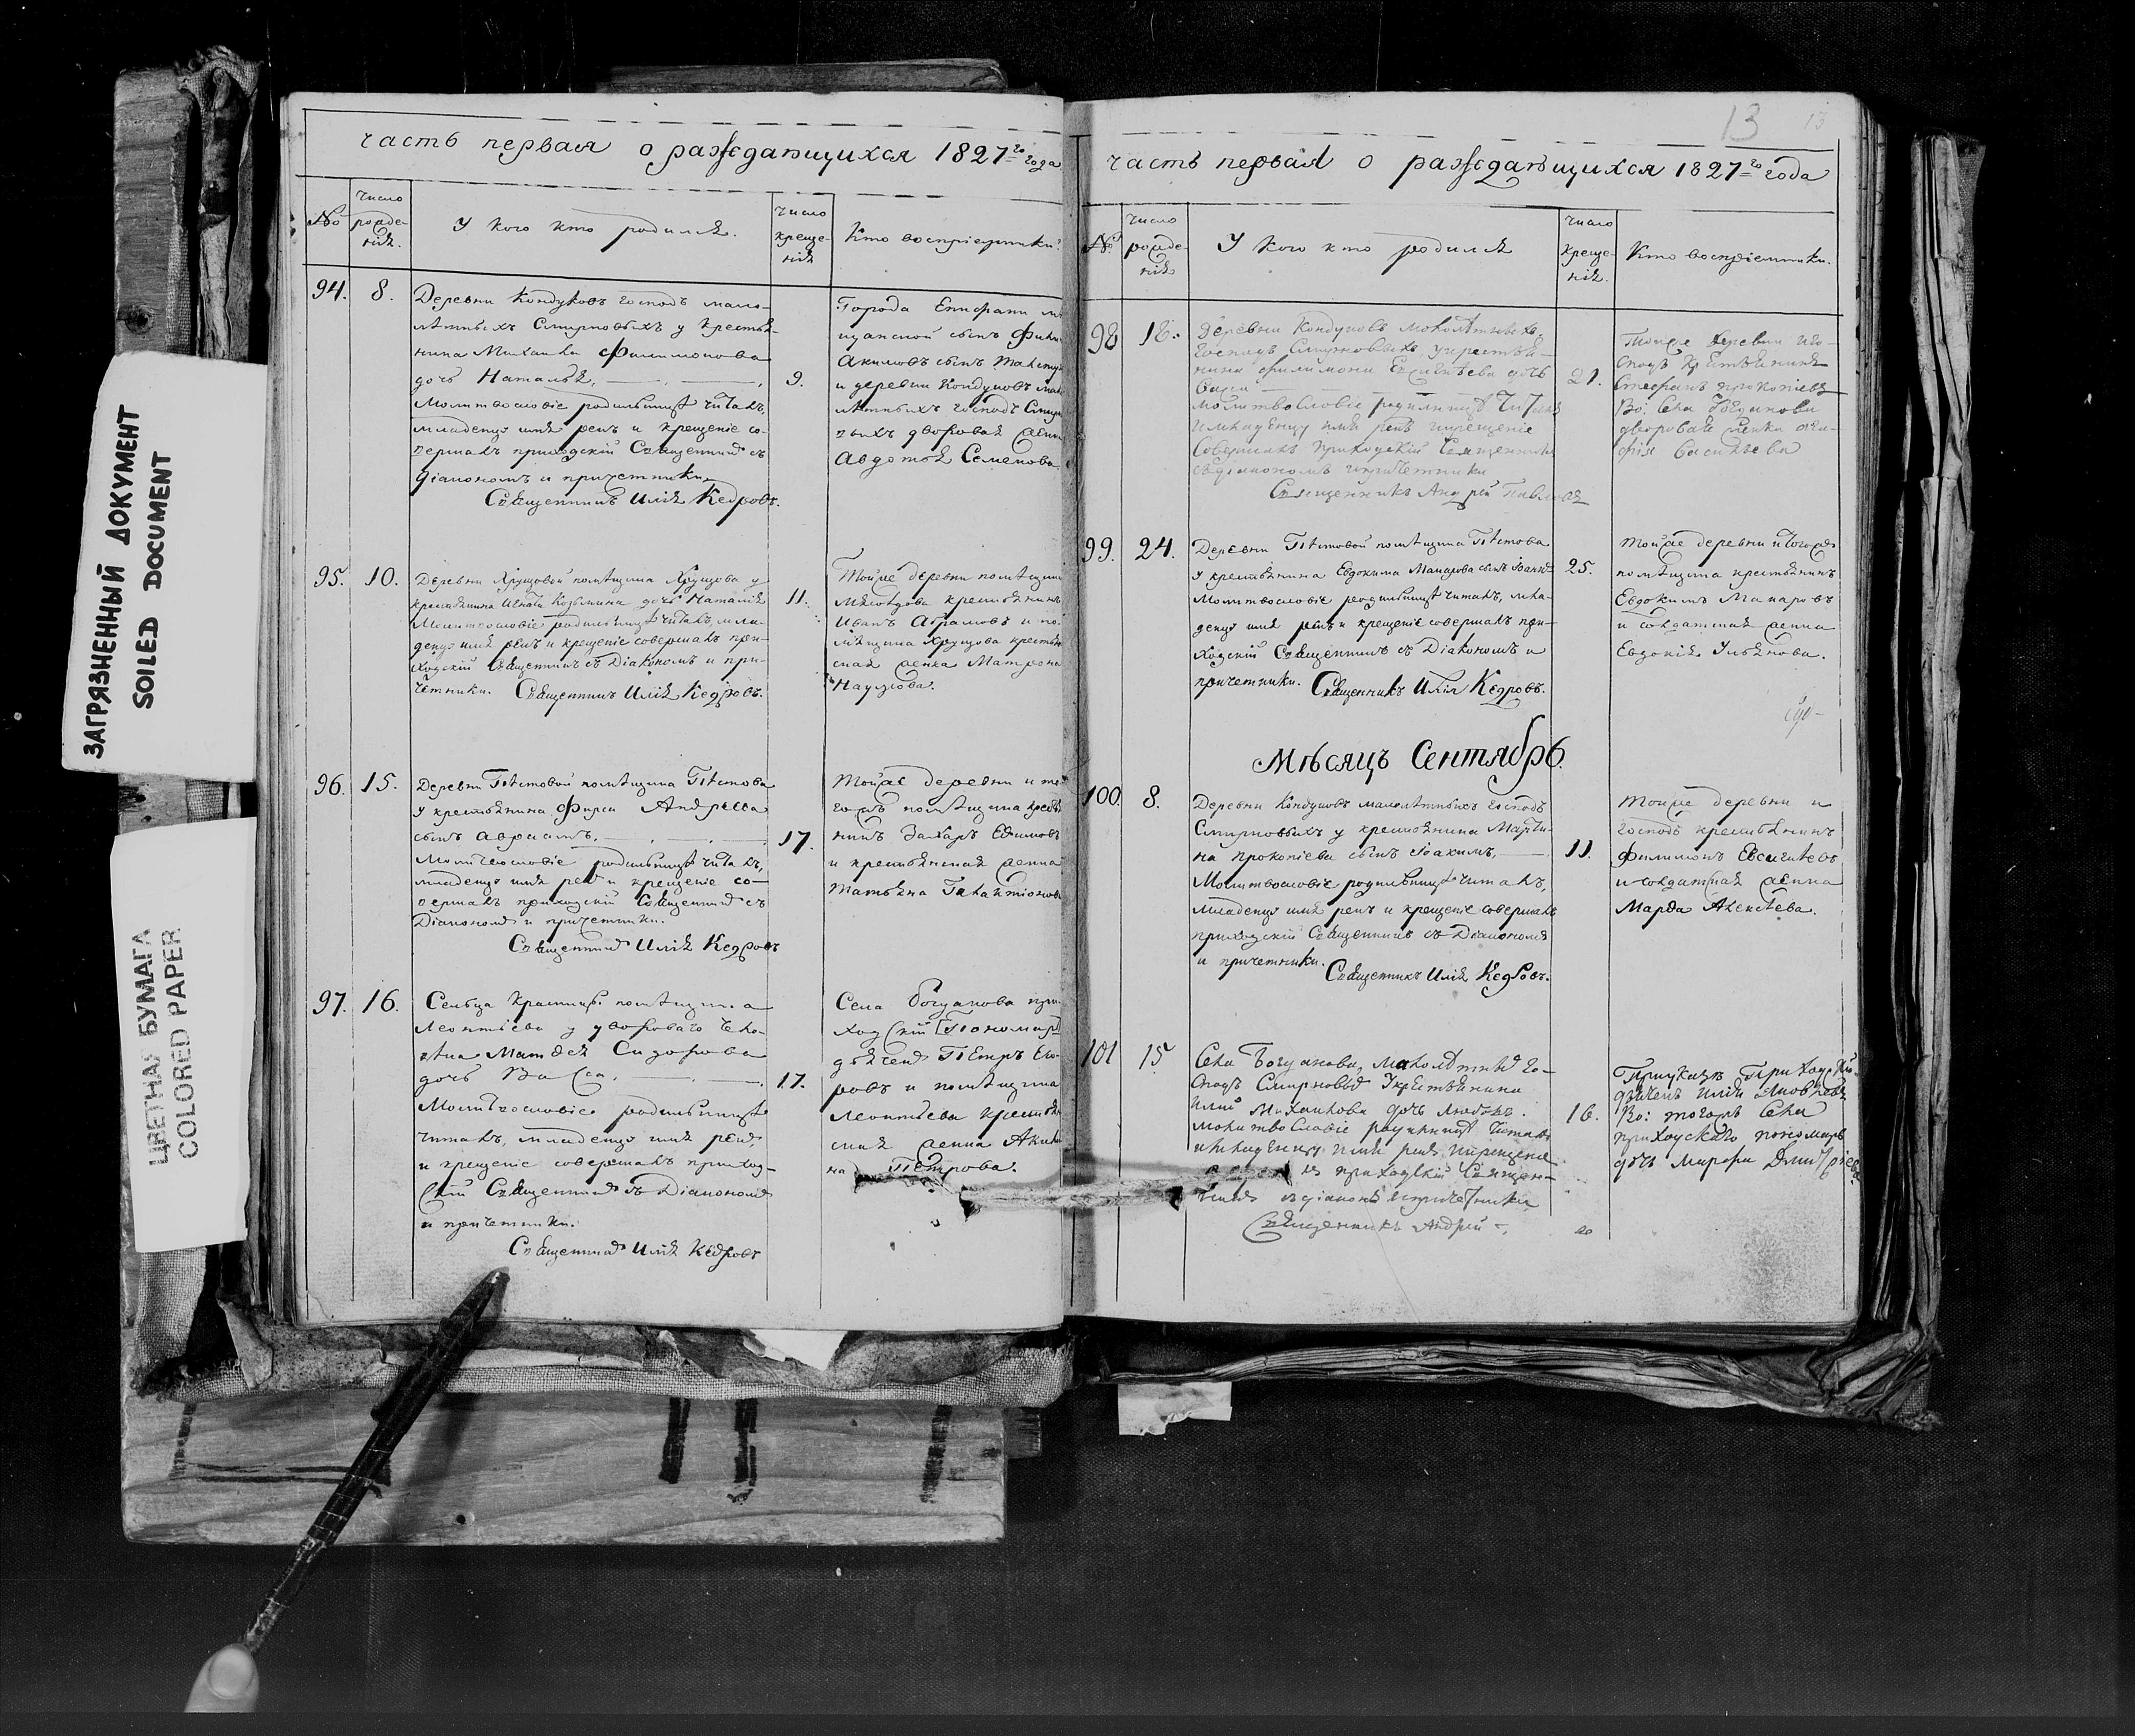 ЗАГРЯЗНЕННЫЙ ДОКУМЕНТ
SOILED DOCUMENT
ЦВЕТНАЯ БУМАГА
COLORED PAPER
часть первая о раждающихся 1827=го года
№
число рожде-
нія.
У кого кто родился.
число
креще-
нія
Кто воспріемники?
94. 8.
Деревни Кондуковъ господъ мало-
лѣтныхъ Смирновыхъ у крестья-
нина Михаила Филимонова
дочь Наталья.
Молитвословіе родильницѣ читалъ,
младенцу имя рекъ и крещеніе со-
вершалъ приходскій Священникъ съ
Діакономъ и причетники
Священникъ Илія Кедровъ.
9.
Города Епифани
щанской сынъ
Акимовъ сынъ
и деревни Кондуковъ
лѣтныхъ господъ
выхъ дворовая
Авдотья Семенова
95. 10.
Деревни Хрущовой помѣщика Хрущова у
крестьянина Игната Козьмина дочь Наталія
Молитвословіе родильницѣ читалъ, мла-
денцу имя рекъ и крещеніе совершалъ при-
ходскій Священникъ съ Діакономъ и при-
четники. Священникъ Илія Кедровъ.
11.
Тойже деревни помѣщика
крестьянинъ
Иванъ Абрамовъ и по-
мѣщика Хрущова крестьян-
ская женка Матрона
Наумова.
96. 15.
Деревни Пѣтовой помѣщика Пѣтова
у крестьянина Фирса Андреева
сынъ Авраамъ.
Молитвословіе родильницѣ читалъ,
младенцу имя рекъ и крещеніе со-
вершалъ приходскій Священникъ съ
Діакономъ и причетники.
Священникъ Илія Кедровъ
17.
Тойже деревни и то-
гожъ помѣщика кресть-
нинъ Захаръ Ефимовъ
и крестьянская женка
Татьяна Галактіонова
97. 16.
Сельца помѣщика
Леонтьева у двороваго чело-
вѣка Матвѣя Сидорова
дочь Васса.
Молитвословіе родильницѣ
читалъ, младенцу имя рекъ
и крещеніе совершалъ приход-
скій Священникъ съ Діакономъ
и причетники.
Священникъ Илія Кедровъ
17.
Села Богданова при-
ходскій Пономарь
Петръ Его-
ровъ и помѣщика
Леонтьева крестьян-
ская женка Акили-
на Петрова.
13 13
часть первая о раждающихся 1827=го года
№
число
рожде-
нія
У кого кто родился
число
креще-
нія.
Кто воспріемники.
98 18.
Деревни Кондуковъ малолѣтныхъ
господъ Смирновыхъ, у крестья-
нина Филимона Евсигнѣева дочь
молитвословіе родильницѣ читалъ
и младенцу имя рекъ и крещеніе
совершалъ приходскій Священникъ
съ діакономъ и причетники
Священникъ Андрей Павловъ
21.
Тойже деревни и го-
сподъ крестьянинъ
Стефанъ Прокопіевъ
Во: Села Богданова
дворовая женка
Васильева
99. 24.
Деревни Пѣтовой помѣщика Пѣтова
у крестьянина Евдокима Макарова сынъ Іоаннъ
Молитвословіе родильницѣ читалъ, мла-
денцу имя рекъ и крещеніе совершалъ при-
ходскій Священникъ съ Діакономъ и
причетники. Священникъ Илія Кедровъ.
25.
Тойже деревни и тогожъ
помѣщика крестьянинъ
Евдокимъ Макаровъ
и солдатская женка
Евдокія Ульянова.
Мѣсяцъ Сентябрь.
100. 8.
Деревни Кондуковъ малолѣтныхъ господъ
Смирновыхъ у крестьянина Марти-
на Прокопіева сынъ Іоакимъ,
Молитвословіе родильницѣ читалъ,
младенцу имя рекъ и крещеніе совершалъ
приходскій Священникъ съ Діакономъ
и причетники.
Священникъ Илія Кедровъ.
11.
Тойже деревни и
господъ крестьянинъ
Филимонъ Евсигнѣевъ
и солдатская женка
Марѳа Алексѣева.
101 15
Села Богданова, малолѣтныхъ го-
сподъ Смирновыхъ у крестьянина
Иліи Михайлова дочь Любовь.
молитвословіе родильницѣ читалъ
и младенцу имя рекъ и крещеніе
приходскій Священ-
никъ съ діакономъ и причетники
Священникъ Андрей
16.
Приходскій
Иліи
Во: тогожъ Села
приходскаго пономаря
дочь Марѳа Дмитріева